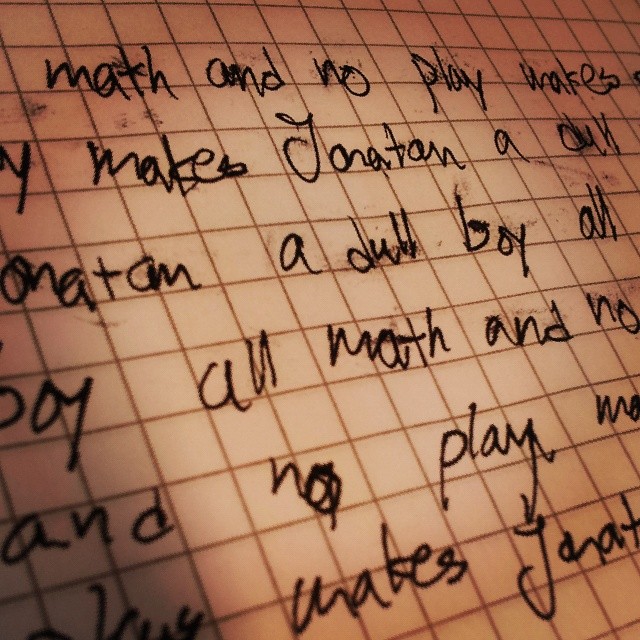 math and no play makes
y makes Jonatan a dull
onatan a dull boy all
boy all math and no
and no play ma
play makes Jonat